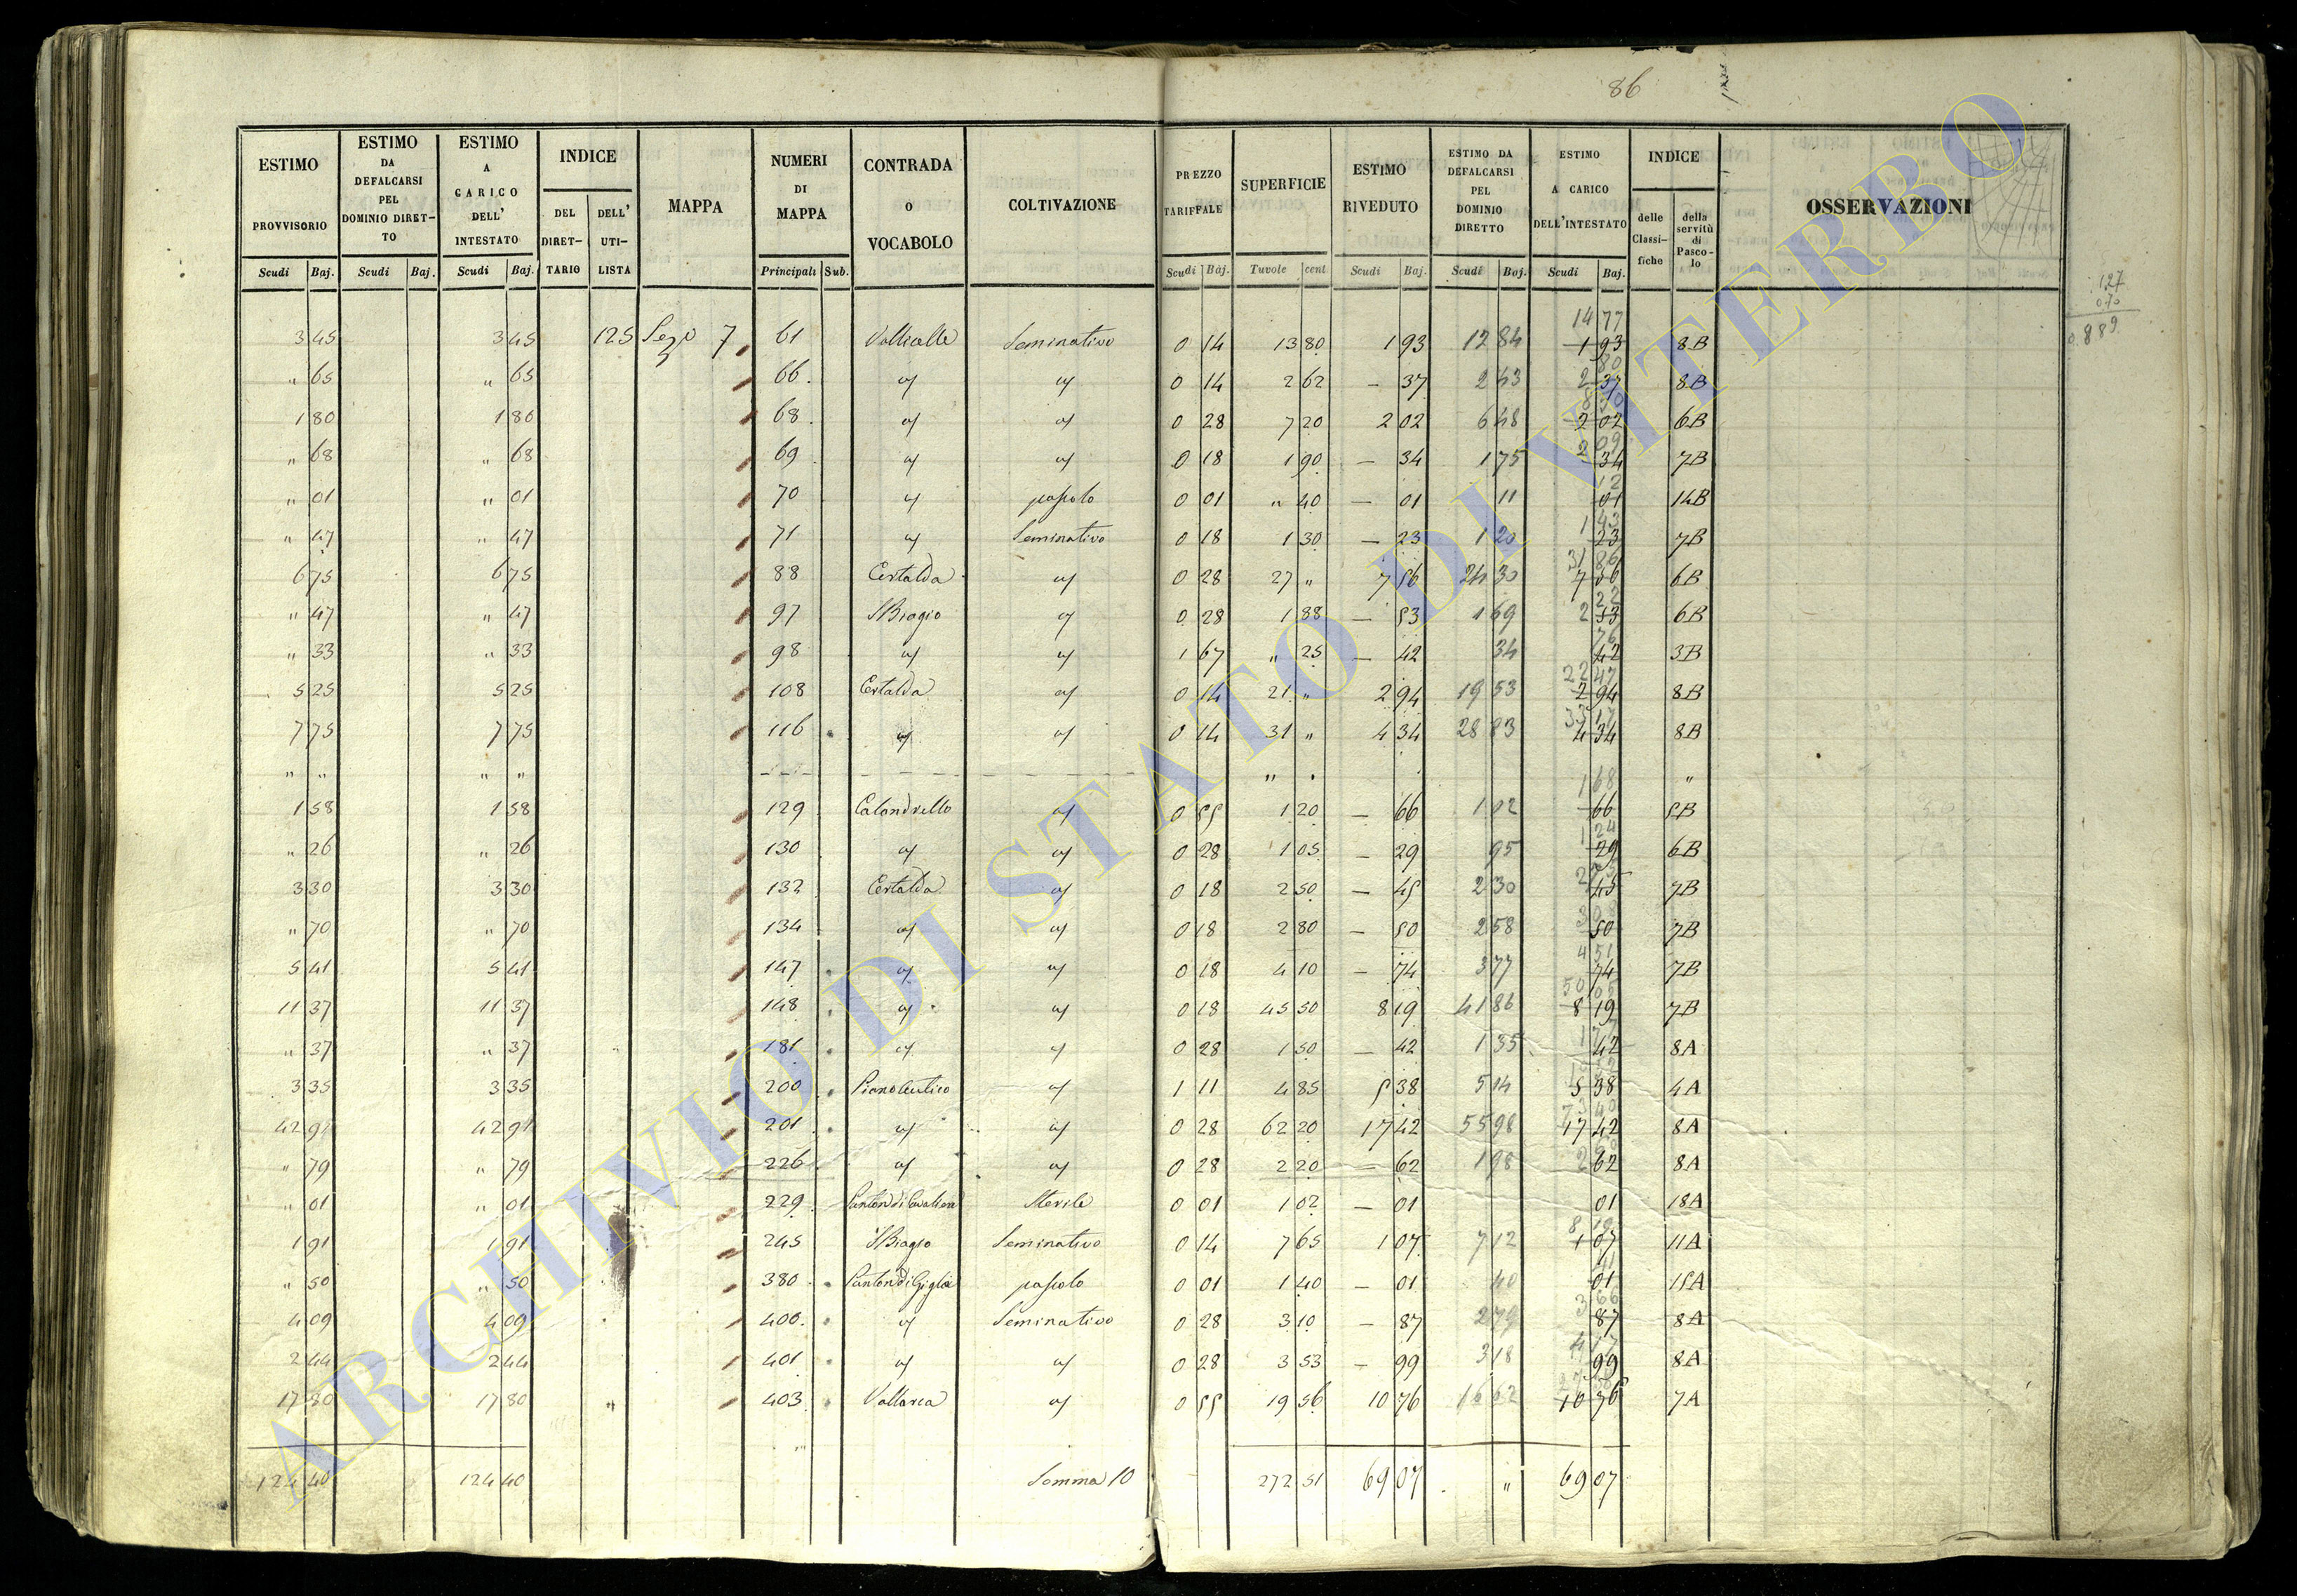 86
ESTIMO PROVVISORIO | ESTIMO DA DEFALCARSI PEL DOMINIO DIRETTO | ESTIMO A CARICO DELL' INTESTATO | INDICE DEL DIRETTARIO | DELL' UTILISTA | MAPPA | NUMERI DI MAPPA | CONTRADA O VOCABOLO | COLTIVAZIONE | PREZZO TARIFFALE | SUPERFICIE | ESTIMO RIVEDUTO | ESTIMO DA DEFALCARSI PEL DOMINIO DIRETTO | ESTIMO A CARICO DELL'INTESTATO | INDICE delle Classifiche | della servitù di Pascolo | OSSERVAZIONI
Scudi Baj. | Scudi Baj. | Scudi Baj. | Principali Sub. | Scudi Baj. | Tavole cent | Scudi Baj. | Scudi Baj. | Scudi Baj.
127
070
0.889
3 45 | 3 45 | 125 | Sezo 7 | 61 | Vallicelle | Seminativo | 0 14 | 13 80 | 1 93 | 12 84 | 14 77 | 1 93 | 8B
" 65 | " 65 | 66 | 0 14 | 2 62 | — 37 | 2 43 | 2 80 | 37 | 8B
1 80 | 1 80 | 68 | 0 28 | 7 20 | 2 02 | 6 48 | 2 02 | 6B
" 68 | " 68 | 69 | 0 18 | 1 90 | — 34 | 1 75 | 2 09 | 34 | 7B
" 01 | " 01 | 70 | pascolo | 0 01 | " 40 | — 01 | 11 | 12 | 01 | 14B
" 47 | " 47 | 71 | Seminativo | 0 18 | 1 30 | — 23 | 1 20 | 1 43 | 23 | 7B
6 75 | 6 75 | 88 | Certalda | 0 28 | 27 " | 7 56 | 24 30 | 31 86 | 7 56 | 6B
" 47 | " 47 | 97 | S Biagio | 0 28 | 1 88 | — 53 | 1 69 | 2 22 | 53 | 6B
" 33 | " 33 | 98 | 1 67 | " 25 | — 42 | 34 | 76 | 42 | 3B
5 25 | 5 25 | 108 | Certalda | 0 14 | 21 " | 2 94 | 19 53 | 22 47 | 2 94 | 8B
7 75 | 7 75 | 116 | 0 14 | 31 " | 4 34 | 28 83 | 33 17 | 4 34 | 8B
" " | " " | - - - | " "
1 58 | 1 58 | 129 | Calandrello | 0 55 | 1 20 | — 66 | 1 02 | 1 68 | 66 | 5B
" 26 | " 26 | 130 | 0 28 | 1 05 | — 29 | 95 | 1 24 | 29 | 6B
3 30 | 3 30 | 132 | Certalda | 0 18 | 2 50 | — 45 | 2 30 | 45 | 7B
" 70 | " 70 | 134 | 0 18 | 2 80 | — 50 | 2 58 | 50 | 7B
5 41 | 5 41 | 147 | 0 18 | 4 10 | — 74 | 3 77 | 4 51 | 74 | 7B
11 37 | 11 37 | 148 | 0 18 | 45 50 | 8 19 | 41 86 | 50 05 | 8 19 | 7B
" 37 | " 37 | 181 | 0 28 | 1 50 | — 42 | 1 35 | 42 | 8A
3 35 | 3 35 | 200 | 1 11 | 4 85 | 5 38 | 5 14 | 5 38 | 4A
42 91 | 42 91 | 201 | 0 28 | 62 20 | 17 42 | 55 98 | 73 40 | 17 42 | 8A
" 79 | " 79 | 226 | 0 28 | 2 20 | — 62 | 1 98 | 62 | 8A
" 01 | " 01 | 229 | Sterile | 0 01 | 1 02 | — 01 | 01 | 18A
1 91 | 1 91 | 245 | S Biagio | Seminativo | 0 14 | 7 65 | 1 07 | 7 12 | 8 19 | 1 07 | 11A
" 50 | " 50 | 380 | pascolo | 0 01 | 1 40 | — 01 | 40 | 41 | 01 | 15A
4 09 | 4 09 | 400 | Seminativo | 0 28 | 3 10 | — 87 | 2 79 | 3 66 | 87 | 8A
2 44 | 2 44 | 401 | 0 28 | 3 53 | — 99 | 3 18 | 4 17 | 99 | 8A
17 80 | 17 80 | 403 | Vallarca | 0 55 | 19 56 | 10 76 | 16 62 | 10 76 | 7A
124 40 | 124 40 | Somma 10 | 272 51 | 69 07 | " | 69 07
ARCHIVIO DI STATO DI VITERBO